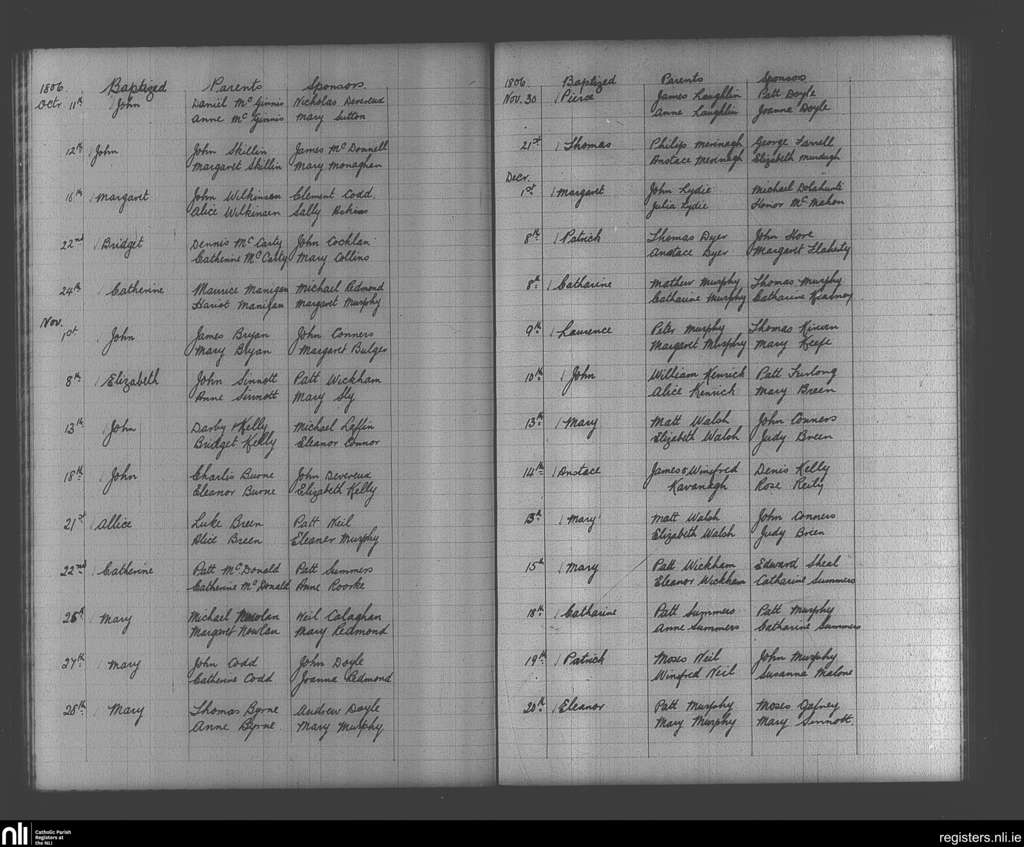 1806. Baptized Parents Sponsors.
Octr. 11th John Daniel McGinnis Nicholas Devereux
Anne McGinnis Mary Sutton
12th John John Skillin James McDonnell
Margaret Skillin Mary Monaghan
16th Margaret John Wilkinson Clement Codd.
Alice Wilkinson Sally Askins
22nd Bridget Dennis McCarty John Cochlan
Catherine McCarty Mary Collins
24th Catherine Maurice Manigan Michael Redmond
Hariot Manigan Margaret Murphy
Nov.
1st John James Bryan John Conners
Mary Bryan Margaret Bulger
8th Elizabeth John Sinnott Patt Wickham
Anne Sinnott Mary Sly
13th John Darby Kelly Michael Laffin
Bridget Kelly Eleanor Connor
18th John Charles Burne John Devereux
Eleanor Burne Elizabeth Kelly
21st Allice Luke Breen Patt Neil
Alice Breen Eleaner Murphy
22nd Catherine Patt McDonald Patt Summers
Catherine McDonald Anne Roorke
26th Mary Michael Nowlan Neil Calaghan
Margaret Nowlan Mary Redmond
27th Mary John Codd John Doyle
Catherine Codd Joanna Redmond
28th Mary Thomas Byrne Andrew Doyle
Anne Byrne Mary Murphy
1806. Baptized Parents Sponsors
Nov. 30 Pierce James Laughlin Patt Doyle
Anne Laughlin Joanna Doyle
21st Thomas Philip Merinagh George Farrell
Anstace Merinagh Elizabeth
Decr.
1st Margaret John Lydie Michael Dolahunt
Julia Lydie Honor McMahon
8th Patrick Thomas Dyer John Hore
Anstace Dyer Margaret Flaherty
8th Catharine Mathew Murphy Thomas Murphy
Catharine Murphy Catharine
9th Laurence Peter Murphy Thomas Kirwan
Margaret Murphy Mary Keefe
10th John William Kenrick Patt Furlong
Alice Kenrick Mary Breen
13th Mary Matt Walsh John Conners
Elizabeth Walsh Judy Breen
14th Anstace James & Winifred Denis Kelly
Kavanagh Rose Reily
13th Mary Matt Walsh John Conners
Elizabeth Walsh Judy Breen
15th Mary Patt Wickham Edward Sheal
Eleanor Wickham Catharine Summers
18th Catharine Patt Summers Patt Murphy
Anne Summers Catharine Summers
19th Patrick Moses Neil John Murphy
Winefred Neil Susanna Malone
20th Eleanor Patt Murphy Moses Gafney
Mary Murphy Mary Sinnott.
nli Catholic Parish
Registers at
the NLI
registers.nli.ie